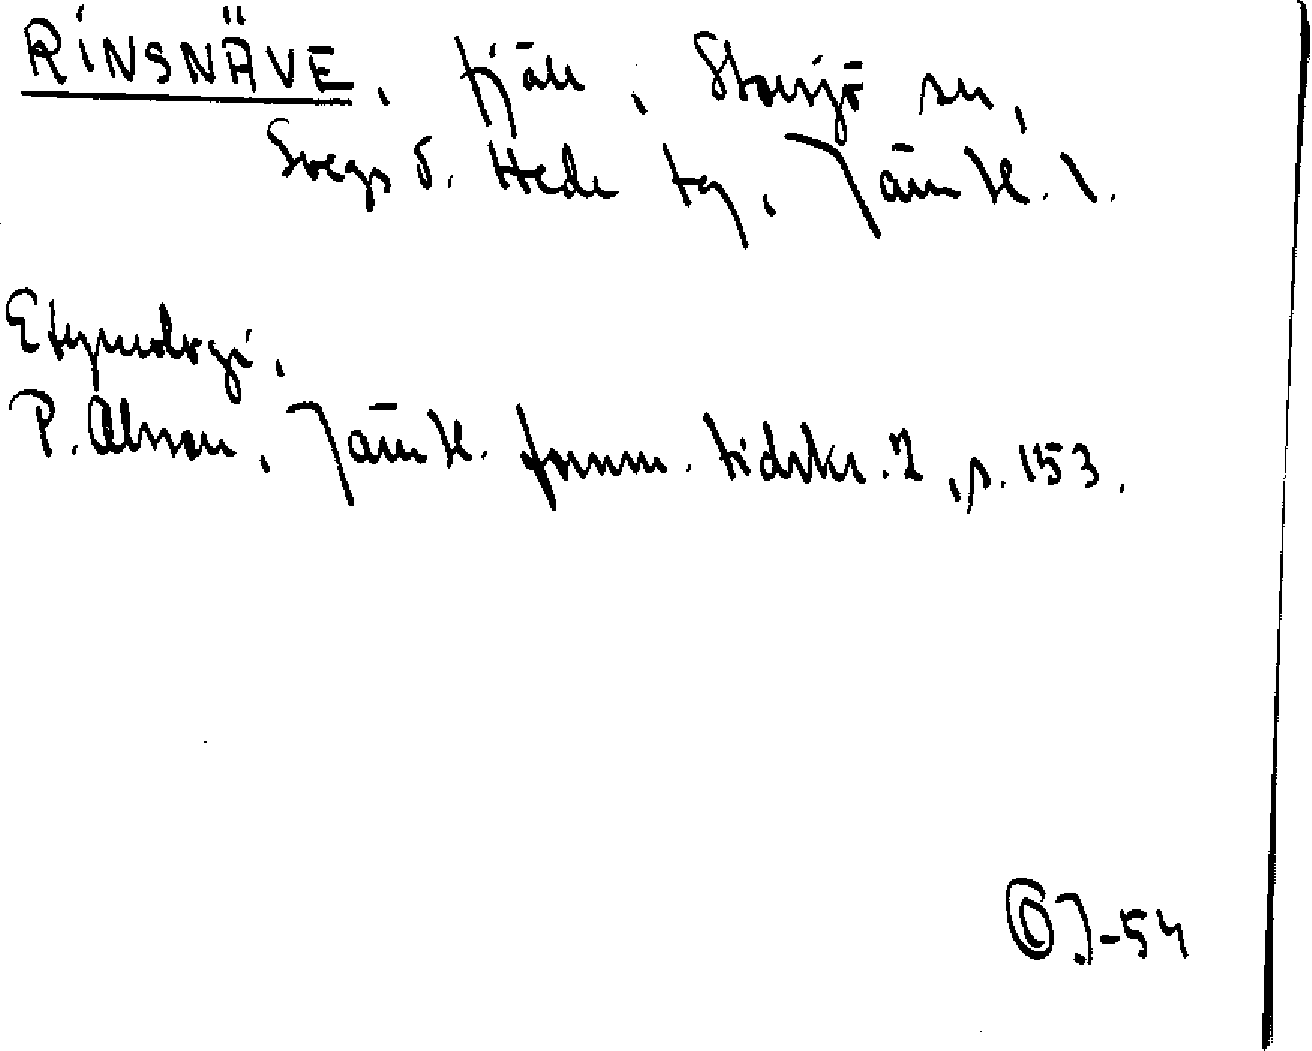 RINSNÄVE, fjäll, Storsjö sn,
Svegs o. Hede tg, Jämtl. l.
Etymologi.
P. Olsson, Jämtl. fornm. tidskr. 2, s. 153.
J-54